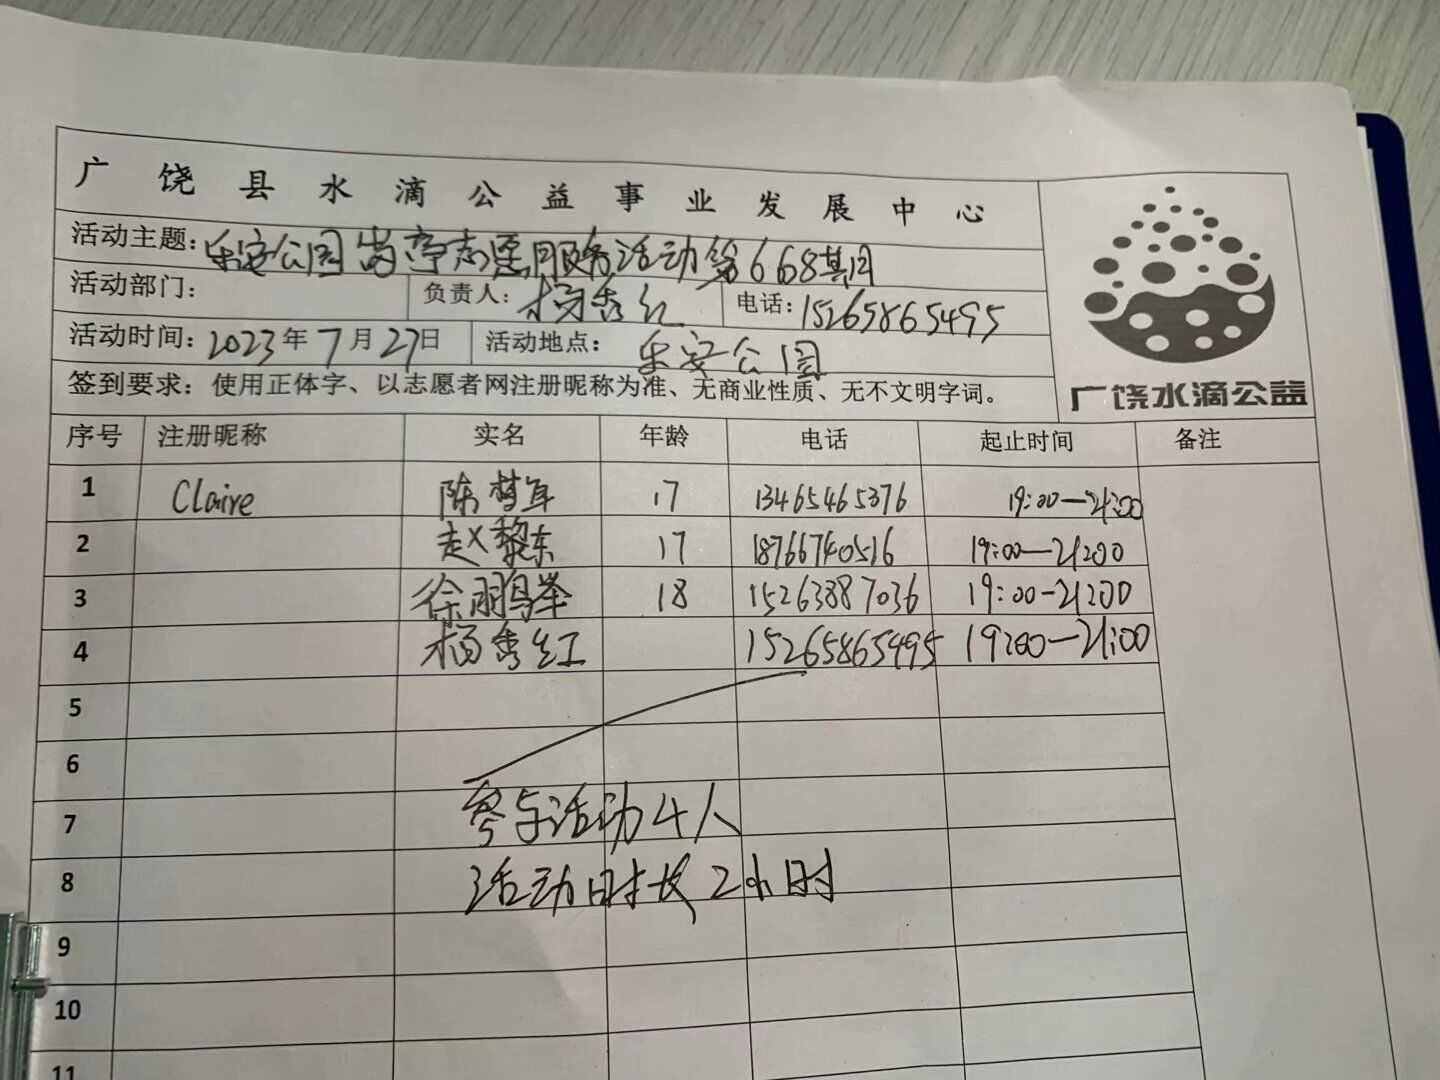 广饶县水滴公益事业发展中心
活动主题：乐安公园岗亭志愿服务活动第668期
活动部门： 负责人：杨秀红 电话：15265865495
活动时间：2023年7月27日 活动地点：乐安公园
签到要求：使用正体字、以志愿者网注册昵称为准、无商业性质、无不文明字词。
广饶水滴公益
序号 注册昵称 实名 年龄 电话 起止时间 备注
1 Claire 陈 17 13465465376 19:00—21:00
2 赵黎东 17 18766740516 19:00—21:00
3 徐 18 15263887036 19:00-21:00
4 杨秀红 15265865495 19:00—21:00
5
6
7 参与活动4人
8 活动时长2小时
9
10
11